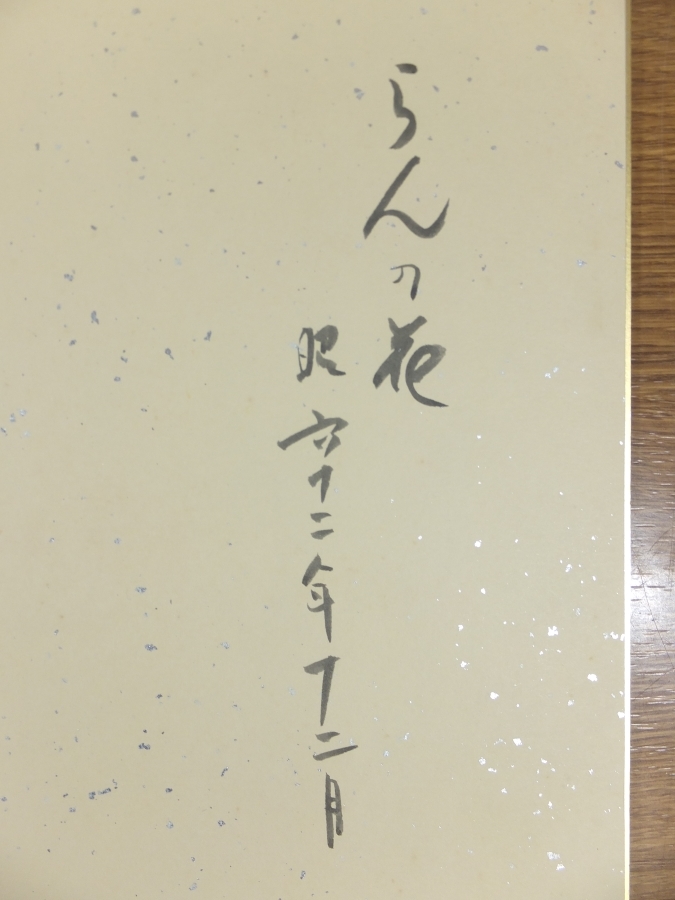 らんの花
昭六十二年十二月